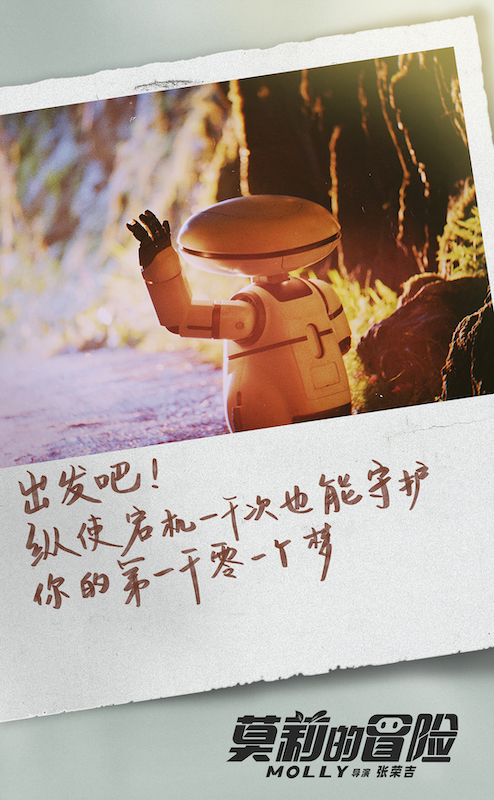 出发吧！
纵使宕机一千次也能守护
你的第一千零一个梦
莫莉的冒险
MOLLY 导演 张荣吉